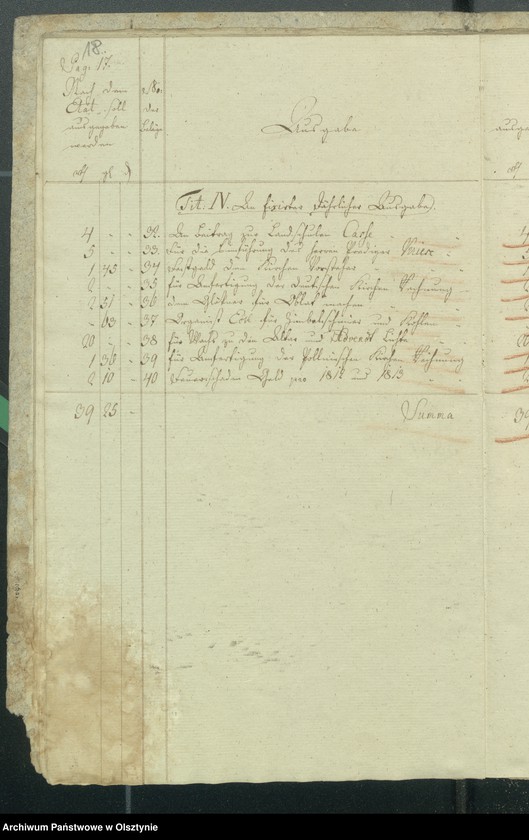 18.
Pag. 17.
Nach dem
Etat soll
ausgegeben
werden
No.
der
Beläge
Ausgabe
Tit. IV. An fixirter Jährlicher Ausgabe.
4 - - 32. An Beitrag zur Landschulen Casse
5 - - 33. für die Einführung des Herrn Prediger
1 45 - 34 den Kirchen Vorsteher
2 - - 35 für Anfertigung der deutschen Kirchen Rechnung
2 51 - 36 dem Glöckner für Oblat machen
- 63 - 37 Organist für und Kohlen
20 - - 38 für Wachs zu den Altar und Advent Lichte
1 36 - 39 für Anfertigung der Pollnischen Kirchen Rechnung
2 10 - 40 Feuerschaden Geld pro 1812 und 1813
39 25 - Summa
Archiwum Państwowe w Olsztynie